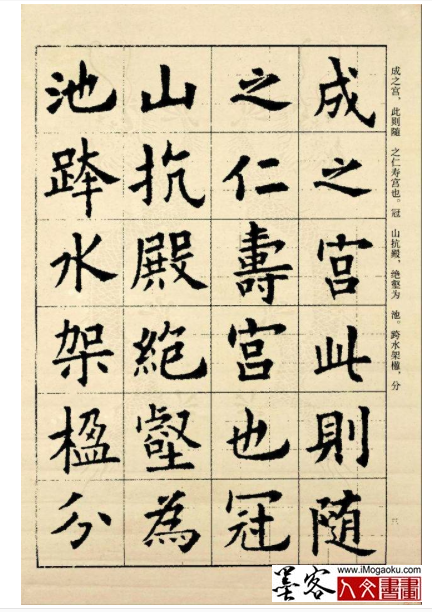 成之宫，此则随　之仁寿宫也。冠　山抗殿，绝壑为　池。跨水架楹，分
成之宫此則随
之仁壽宫也冠
山抗殿絕壑為
池跨水架楹分
六
www.iMogaoku.com
墨客
人文書畫